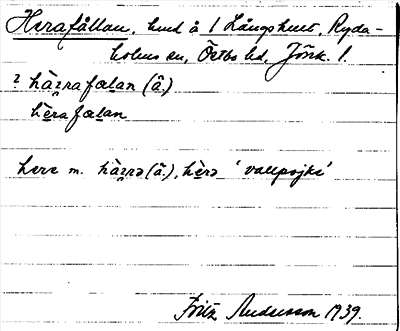 Herafållan, hmd å 1 Långshult, Ryda-
holms sn, Östbo hd, Jönk. l.
? hä̀ɪrafælan (ä̂.)
hèrafælan
here m. hä̀ɪrə (ä̂.), hèrə 'vallpojke'
Fritz Andersson 1939.